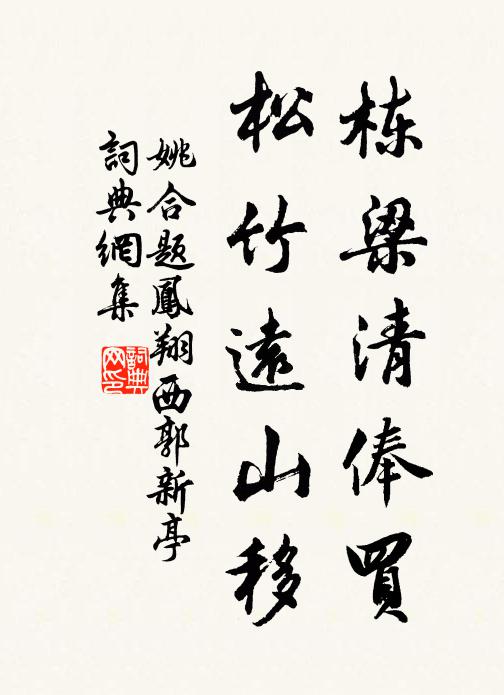 栋梁清俸買
松竹遠山移
姚合题鳳翔西郭新亭
詞典網集
詞典网印